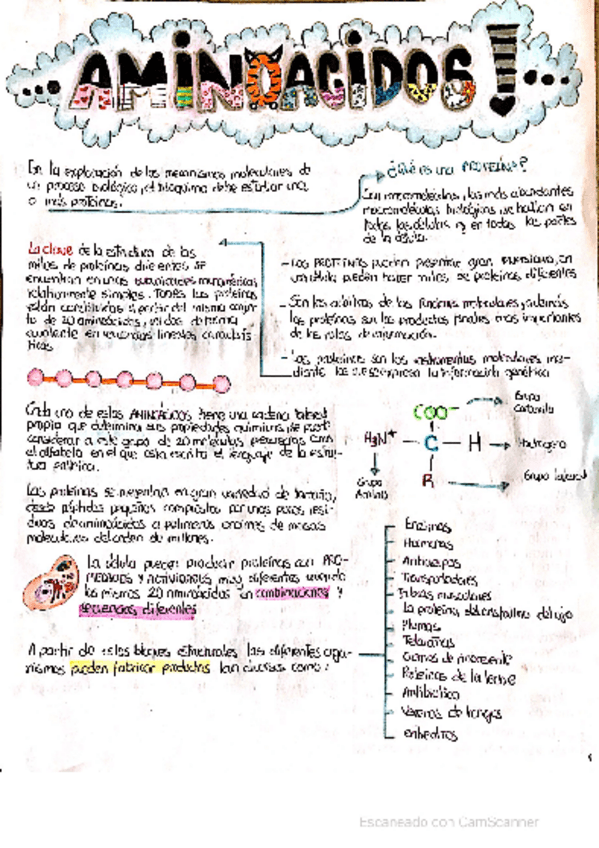 AMINOACIDOS!
En la exploración de los mecanismos moleculares de
un proceso biológico, el bioquimico debe estudiar una
o más proteinas.
¿Qué es una PROTEINA?
Son macromoléculas, las más abundantes
macromoléculas biológicas, se hallan en
todas las células y en todas las partes
de la célula.
- Las PROTEINAS pueden presentar gran en
una célula pueden haber miles de proteinas diferentes
- Son los árbitros de las moleculares, además
las proteinas son los productos finales más importantes
de las rutas de información.
- Las proteinas son los instrumentos moleculares me-
diante los que se expresa la información genética
La clave de la estructura de los
miles de proteinas diferentes se
encuentra en unas subunidades monoméricas
relativamente simples. Todas las proteinas
están constituidas a partir del mismo conjun-
to de 20 aminoácidos, unidos de forma
covalente en secuencias lineales caracterís
ticas
Cada uno de estos AMINOÁCIDOS tiene una cadena lateral
propia que determina sus propiedades químicas, se puede
considerar a este grupo de 20 moléculas precursoras como
el alfabeto en el que esta escrito el lenguaje de la estruc-
tura proteica.
COO-
Grupo
Carboxilo
H3N+ — C — H
Hidrogeno
R
Grupo lateral
Grupo
Amino
Las proteinas se presentan en gran variedad de tamaño,
desde péptidos pequeños compuestos por unos pocos resi-
duos de aminoácidos a polimeros enormes de masas
moleculares del orden de millones.
La célula puede producir proteinas con PRO-
PIEDADES Y ACTIVIDADES muy diferentes uniendo
los mismos 20 aminoácidos en combinaciones y
secuencias diferentes
A partir de estos bloques estructurales las diferentes orga-
nismos pueden fabricar productos tan diversos como:
Enzimas
Hormonas
Anticuerpos
Transportadores
Fibras musculares
La proteina del cristalino del ojo
Plumas
Telarañas
Cuernos de rinoceronte
Proteinas de la leche
Antibiotico
Venenos de hongos
Escaneado con CamScanner